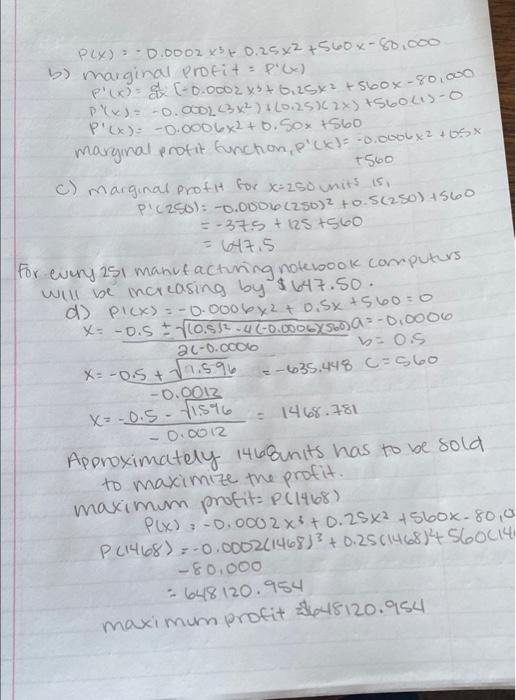 P(x) = -0.0002 x³ + 0.25x² + 560x - 80,000
b) marginal profit = P'(x)
P'(x) = d/dx [-0.0002 x³ + 0.25x² + 560x - 80,000
P'(x) = -0.0002(3x²) + (0.25)(2x) + 560(1) - 0
P'(x) = -0.0006x² + 0.50x + 560
marginal profit function, P'(x) = -0.0006x² + 0.5x
+560
c) marginal profit for x=250 units is,
P'(250) = -0.0006(250)² + 0.5(250) + 560
= -37.5 + 125 + 560
= 647.5
For every 251 manufacturing notebook computers
will be increasing by $647.50.
d) P'(x) = -0.0006x² + 0.5x + 560 = 0
x = -0.5 ± √(0.5)² - 4(-0.0006)(560) a = -0.0006
2(-0.0006 b = 0.5
x = -0.5 + √1.596 = -635.448 c = 560
-0.0012
x = -0.5 - √1596 = 1468.781
-0.0012
Approximately 1468 units has to be sold
to maximize the profit.
maximum profit = P(1468)
P(x) = -0.0002x³ + 0.25x² + 560x - 80,0
P(1468) = -0.0002(1468)³ + 0.25(1468)² + 560(14
-80,000
= 648120.954
maximum profit = $648120.954